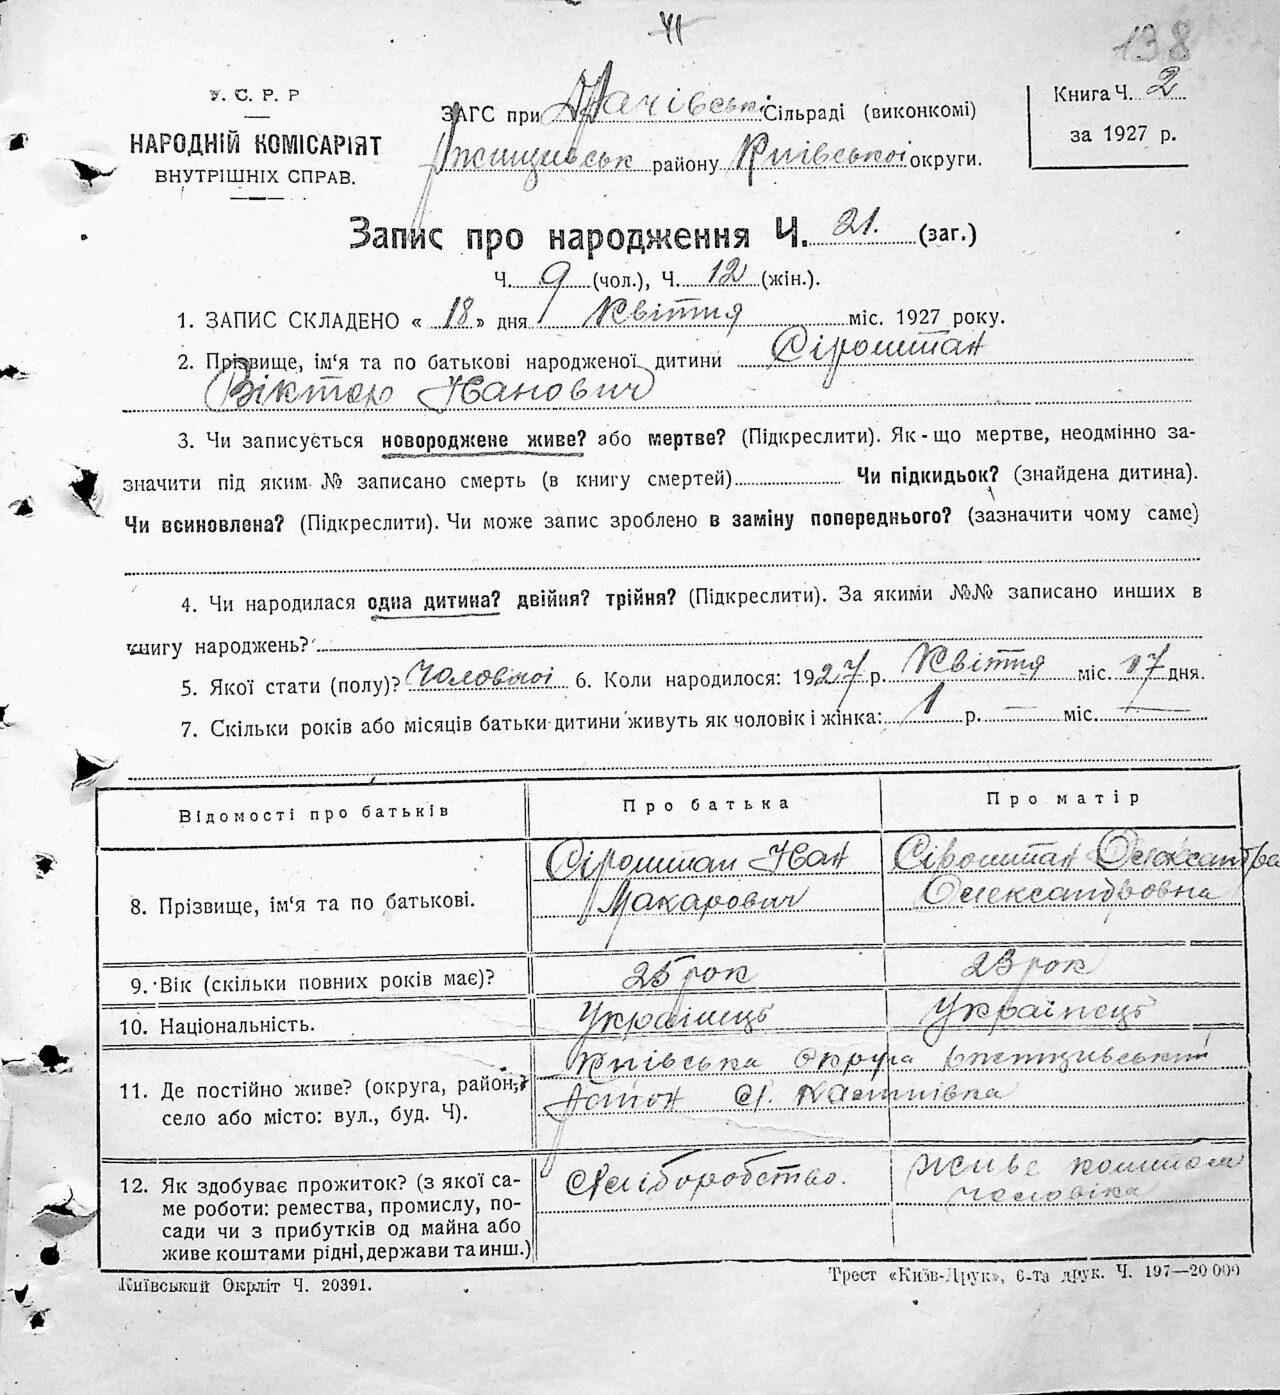 138
У. С. Р. Р
НАРОДНІЙ КОМІСАРІЯТ
ВНУТРІШНІХ СПРАВ.
ЗАГС при Грачівські Сільраді (виконкомі)
Ржищивськ району Київської округи.
Книга Ч. 2
за 1927 р.
Запис про народження Ч. 21. (заг.)
Ч. 9 (чол.), Ч. 12 (жін.).
1. ЗАПИС СКЛАДЕНО « 18 » дня Квітня міс. 1927 року.
2. Прізвище, ім'я та по батькові народженої дитини Сіроштан
Віктор Іванович
3. Чи записується новороджене живе? або мертве? (Підкреслити). Як-що мертве, неодмінно за-
значити під яким № записано смерть (в книгу смертей) Чи підкидьок? (знайдена дитина).
Чи всиновлена? (Підкреслити). Чи може запис зроблено в заміну попереднього? (зазначити чому саме)
4. Чи народилася одна дитина? двійня? трійня? (Підкреслити). За якими №№ записано инших в
книгу народжень?
5. Якої статі (полу)? Чоловічої 6. Коли народилося: 1927 р. Квітня міс. 17 дня.
7. Скільки років або місяців батьки дитини живуть як чоловік і жінка: 1 р. — міс. —
Відомості про батьків Про батька Про матір
8. Прізвище, ім'я та по батькові. Сіроштан Іван Сіроштан Олександра
Макарович Олександровна
9. Вік (скільки повних років має)? 25 рок 23 рок
10. Національність. Українець Українець
11. Де постійно живе? (округа, район, Київська округа Ржищивський
село або місто: вул., буд. Ч). Район С.
12. Як здобуває прожиток? (з якої са- Хліборобство. живе коштом
ме роботи: ремества, промислу, по- чоловіка
сади чи з прибутків од майна або
живе коштами рідні, держави та инш.)
Київський Окрліт Ч. 20391.
Трест «Київ-Друк», 6-та друк. Ч. 197—20 000